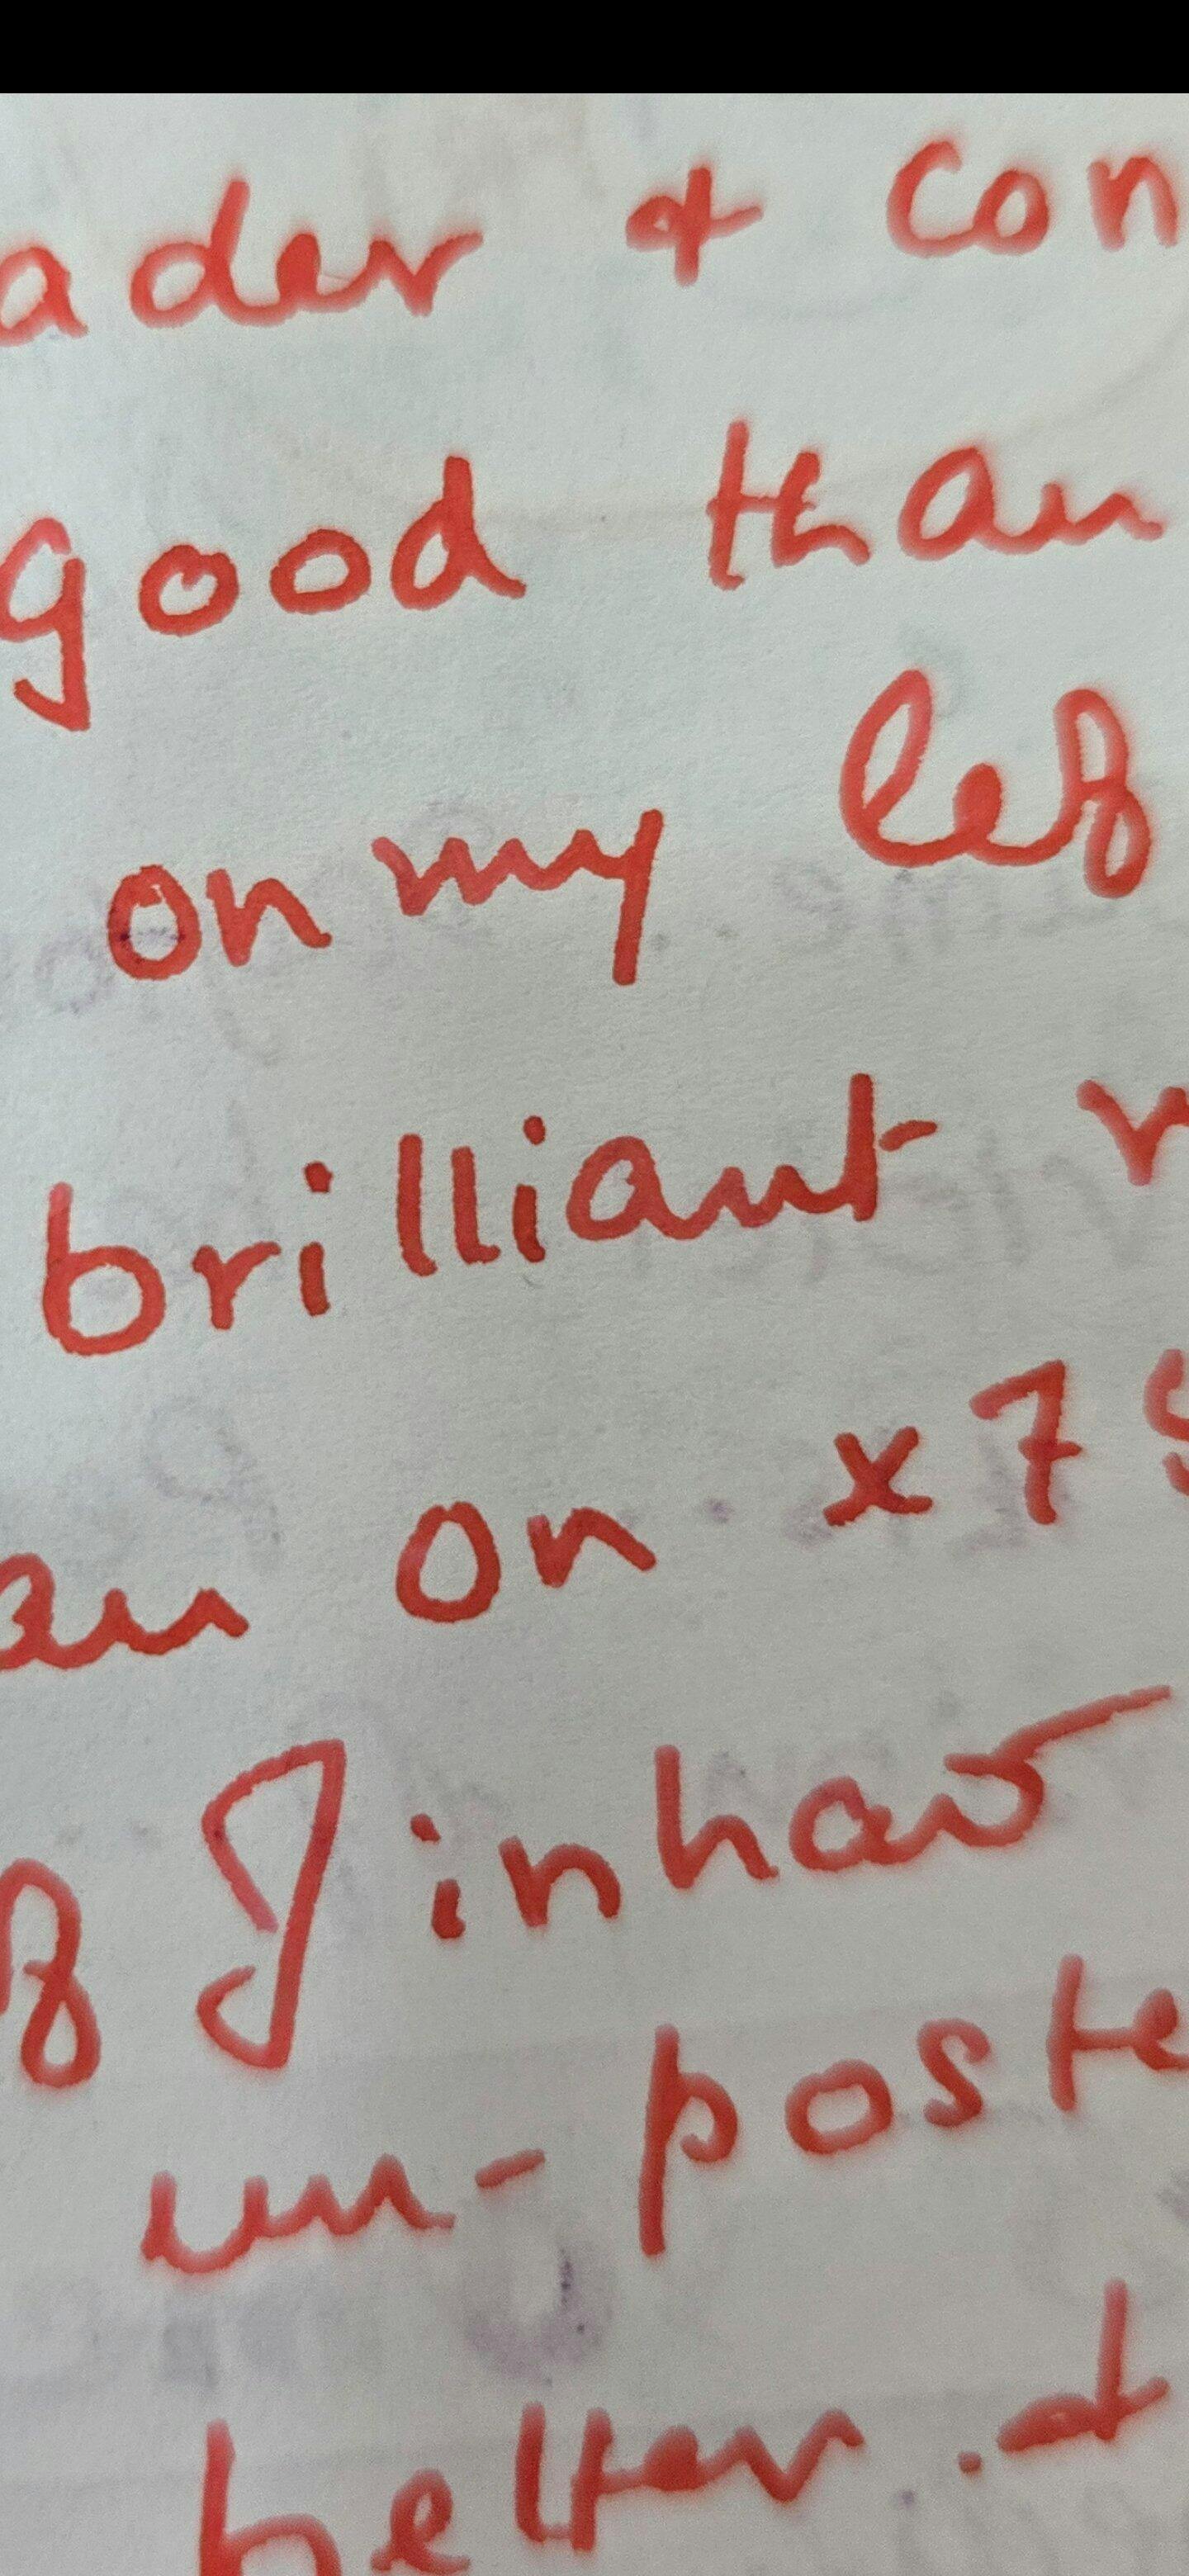 ader & con
good than
on my lef
brilliant r
an on x7s
of Jinhao
un-poste
better.